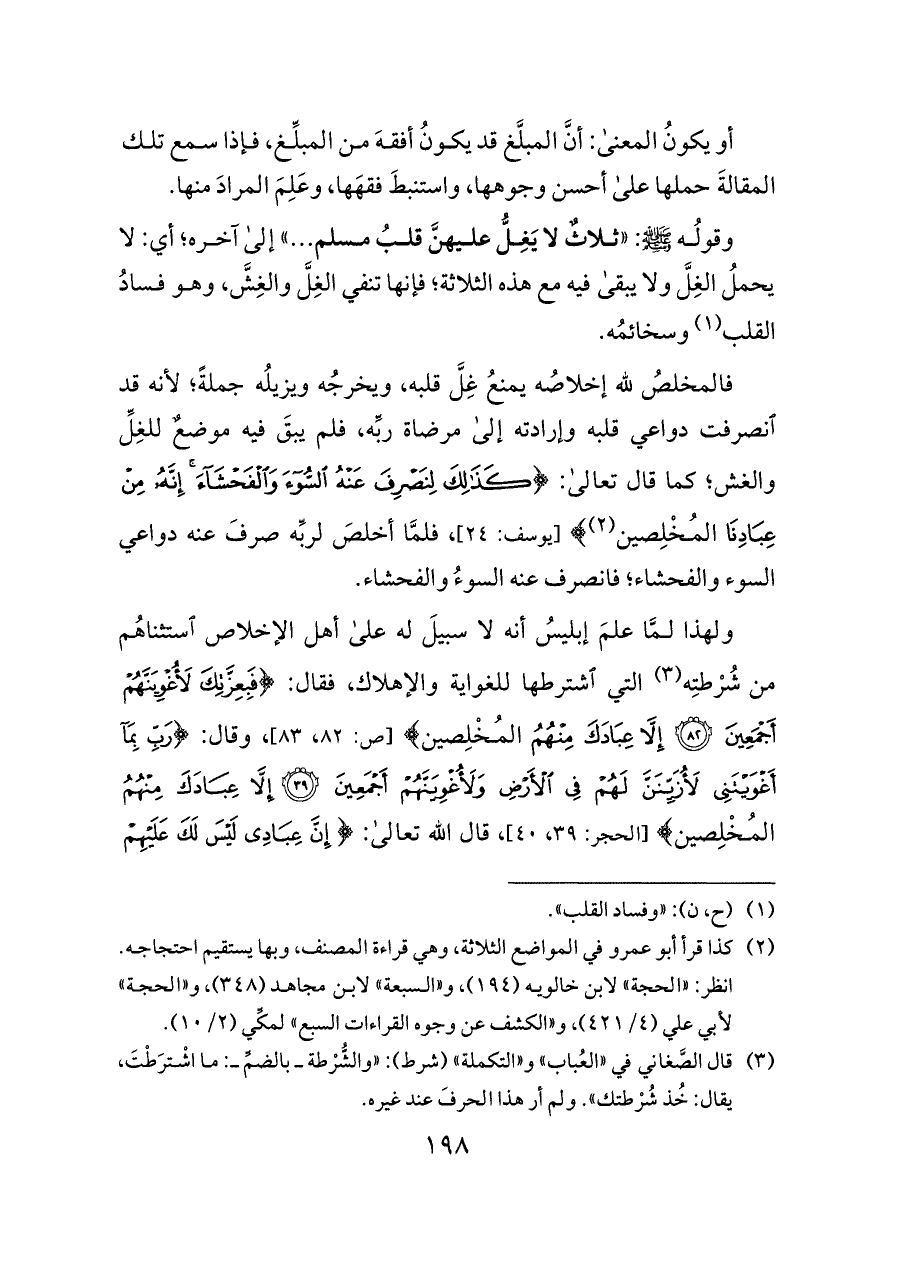 أو يكونُ المعنىٰ: أنَّ المبلَّغ قد يكـونُ أفقـهَ مـن المبلِّـغ، فـإذا سـمع تلـك
المقالةَ حملها علىٰ أحسن وجوهها، واستنبطَ فقهَها، وعَلِمَ المرادَ منها.
وقولُـه ﷺ: «ثـلاثٌ لا يَغِـلُّ علـيهنَّ قلـبُ مـسلم...» إلىٰ آخـره؛ أي: لا
يحملُ الغِلَّ ولا يبقىٰ فيه مع هذه الثلاثة؛ فإنها تنفي الغِلَّ والغِشَّ، وهـو فـسادُ
القلب(١) وسخائمُه.
فالمخلصُ لله إخلاصُه يمنعُ غِلَّ قلبه، ويخرجُه ويزيلُه جملةً؛ لأنه قد
ٱنصرفت دواعي قلبه وإرادته إلىٰ مرضاة ربِّه، فلم يبقَ فيه موضعٌ للغِلِّ
والغش؛ كما قال تعالىٰ: ﴿كَذَٰلِكَ لِنَصْرِفَ عَنْهُ ٱلسُّوٓءَ وَٱلْفَحْشَآءَ ۚ إِنَّهُۥ مِنْ
عِبَادِنَا المُخْلِصين(٢)﴾ [يوسف: ٢٤]، فلمَّا أخلصَ لربِّه صرفَ عنه دواعي
السوء والفحشاء؛ فانصرف عنه السوءُ والفحشاء.
ولهذا لـمَّا علمَ إبليسُ أنه لا سبيلَ له علىٰ أهل الإخلاص ٱستثناهُم
من شُرْطتِه(٣) التي ٱشترطها للغواية والإهلاك، فقال: ﴿فَبِعِزَّتِكَ لَأُغْوِيَنَّهُمْ
أَجْمَعِينَ ﴿٨٢﴾ إِلَّا عِبَادَكَ مِنْهُمُ المُخْلِصين﴾ [ص: ٨٢، ٨٣]، وقال: ﴿رَبِّ بِمَآ
أَغْوَيْتَنِى لَأُزَيِّنَنَّ لَهُمْ فِى ٱلْأَرْضِ وَلَأُغْوِيَنَّهُمْ أَجْمَعِينَ ﴿٣٩﴾ إِلَّا عِبَادَكَ مِنْهُمُ
المُخْلِصين﴾ [الحجر: ٣٩، ٤٠]، قال الله تعالىٰ: ﴿إِنَّ عِبَادِى لَيْسَ لَكَ عَلَيْهِمْ
(١) (ح، ن): «وفساد القلب».
(٢) كذا قرأ أبو عمرو في المواضع الثلاثة، وهي قراءة المصنف، وبها يستقيم احتجاجـه.
انظر: «الحجة» لابن خالويـه (١٩٤)، و«الـسبعة» لابـن مجاهـد (٣٤٨)، و«الحجـة»
لأبي علي (٤/ ٤٢١)، و«الكشف عن وجوه القراءات السبع» لمكِّي (٢/ ١٠).
(٣) قال الصَّغاني في «العُباب» و«التكملة» (شرط): «والشُّرْطة ـ بالضمِّ ـ: مـا اشْـترَطْتَ،
يقال: خُذ شُرْطتك». ولم أر هذا الحرفَ عند غيره.
١٩٨